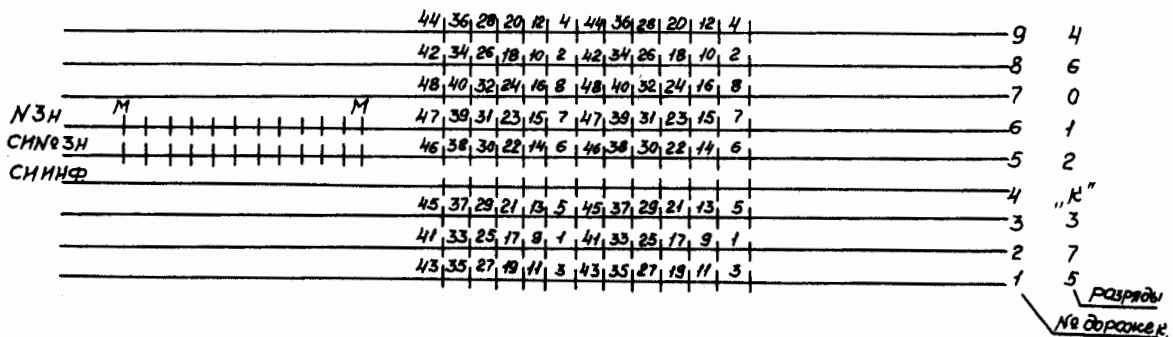 44 36 28 20 12 4 44 36 28 20 12 4 9 4
42 34 26 18 10 2 42 34 26 18 10 2 8 6
48 40 32 24 16 8 48 40 32 24 16 8 7 0
NЗН М М 47 39 31 23 15 7 47 39 31 23 15 7 6 1
СИ№ЗН 46 38 30 22 14 6 46 38 30 22 14 6 5 2
СИИНФ 4 „К"
45 37 29 21 13 5 45 37 29 21 13 5 3 3
41 33 25 17 9 1 41 33 25 17 9 1 2 7
43 35 27 19 11 3 43 35 27 19 11 3 1 5
разряды
№ дорожек.